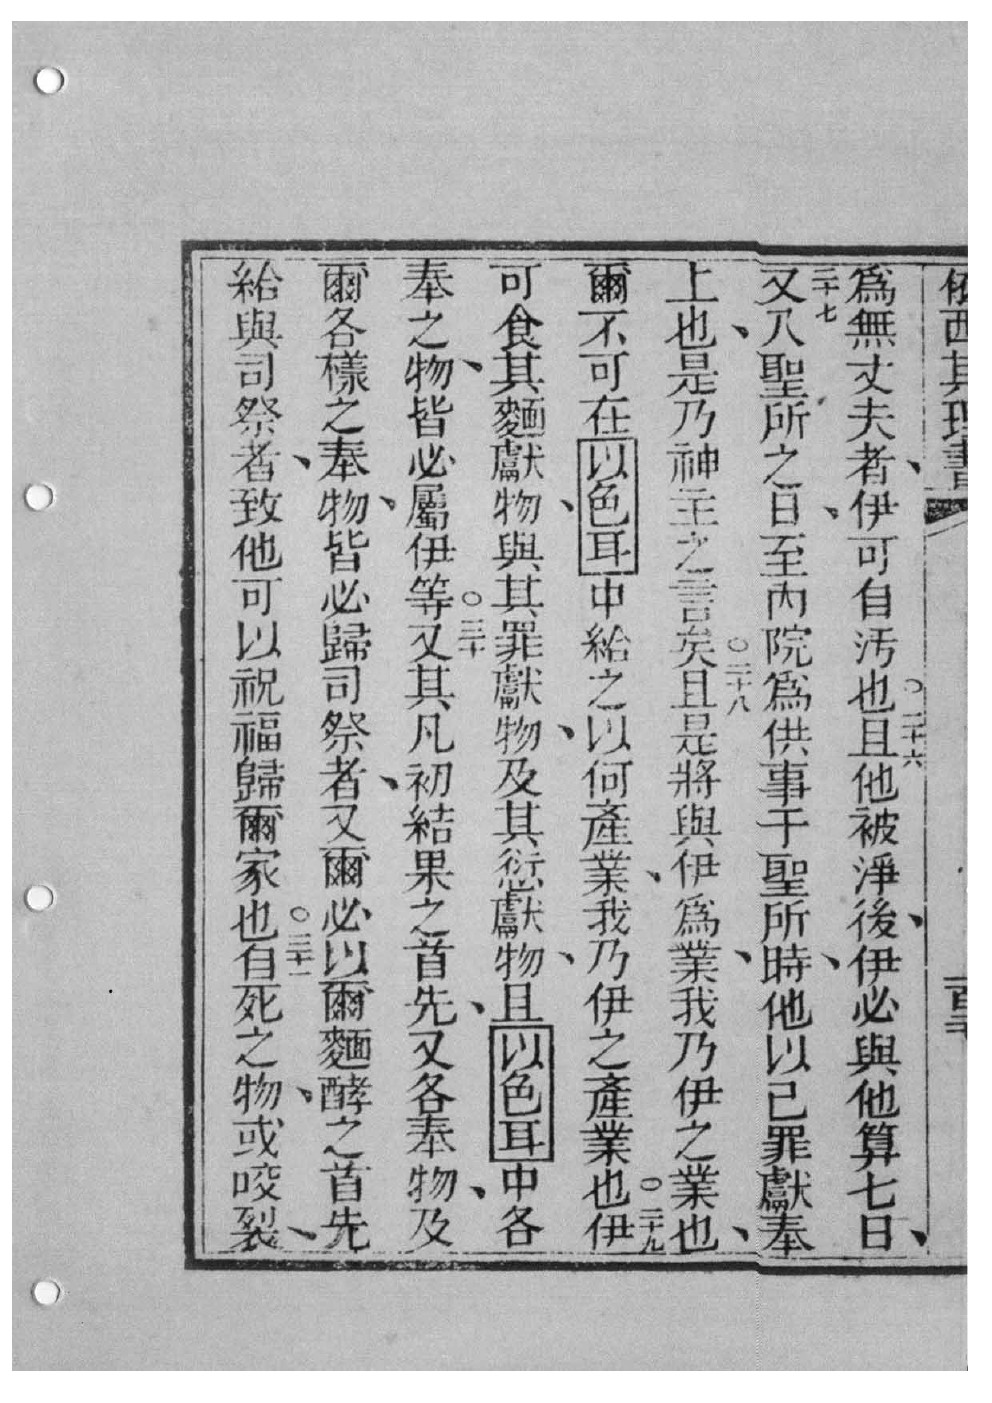 依西其理書 百三
爲無丈夫者、伊可自汚也○二十六且他被淨後、伊必與他算七日、
二十七又入聖所之日、至內院爲供事于聖所時、他以己罪獻奉
上也、是乃神主之言矣○二十八且是將與伊爲業、我乃伊之業也、
爾不可在以色耳中給之以何產業、我乃伊之產業也○二十九伊
可食其麵獻物、與其罪獻物、及其愆獻物、且以色耳中各
奉之物、皆必屬伊等○三十又其凡初結果之首先、又各奉物、及
爾各樣之奉物、皆必歸司祭者、又爾必以爾麵酵之首先
給與司祭者、致他可以祝福歸爾家也○三十一自死之物、或咬裂、